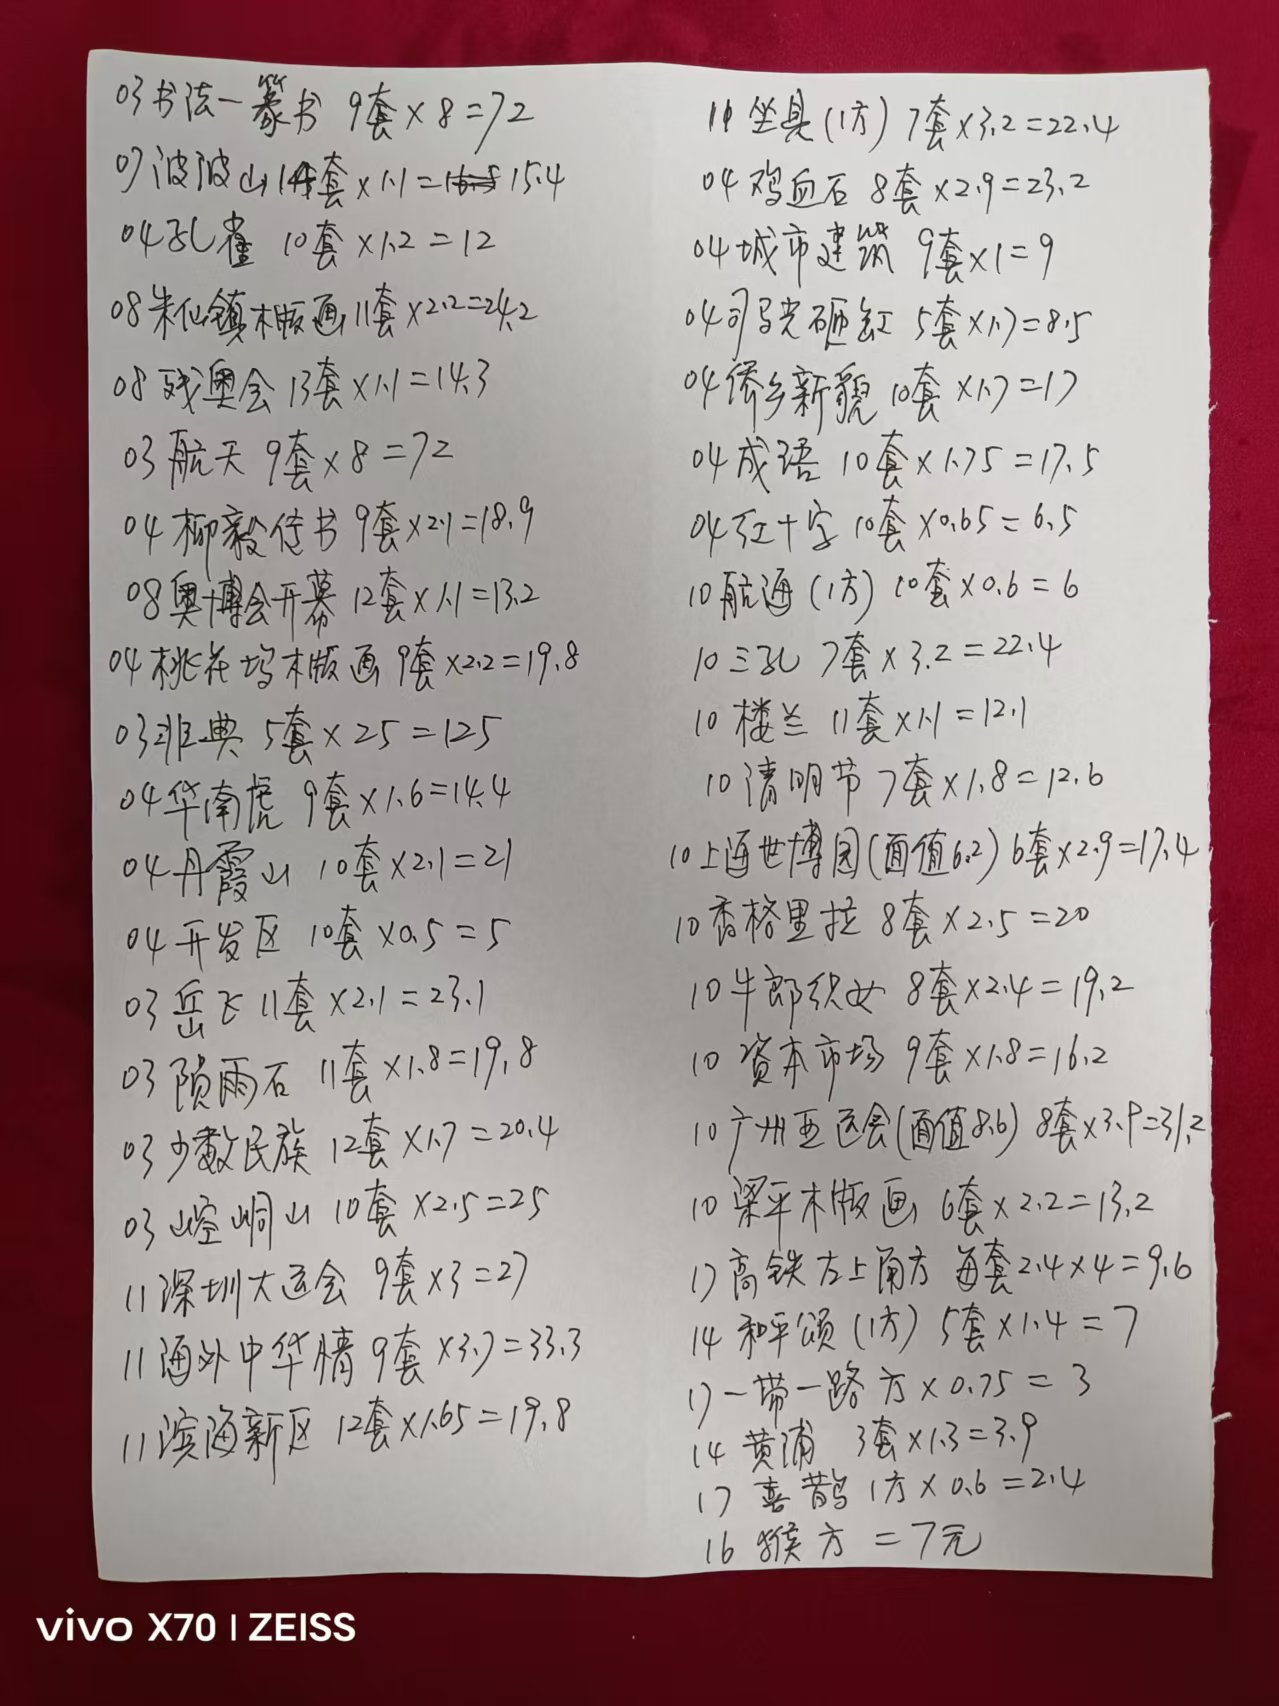 03书法一篆书 9套×8=72
07波波山14套×1.1=15.4
04孔雀 10套×1.2=12
08朱仙镇木版画11套×2.2=24.2
08残奥会13套×1.1=14.3
03航天 9套×8=72
04柳毅传书 9套×2.1=18.9
08奥博会开幕 12套×1.1=13.2
04桃花坞木版画 9套×2.2=19.8
03非典 5套×25=125
04华南虎 9套×1.6=14.4
04丹霞山 10套×2.1=21
04开发区 10套×0.5=5
03岳飞11套×2.1=23.1
03陨雨石 11套×1.8=19.8
03少数民族 12套×1.7=20.4
03崆峒山 10套×2.5=25
11深圳大运会 9套×3=27
11海外中华情 9套×3.7=33.3
11滨海新区 12套×1.65=19.8
11坐具(1方) 7套×3.2=22.4
04鸡血石 8套×2.9=23.2
04城市建筑 9套×1=9
04司马光砸缸 5套×1.7=8.5
04侨乡新貌 10套×1.7=17
04成语 10套×1.75=17.5
04红十字 10套×0.65=6.5
10航海(1方) 10套×0.6=6
10三孔 7套×3.2=22.4
10楼兰 11套×1.1=12.1
10清明节 7套×1.8=12.6
10上海世博园(面值6.2) 6套×2.9=17.4
10香格里拉 8套×2.5=20
10牛郎织女 8套×2.4=19.2
10资本市场 9套×1.8=16.2
10广州亚运会(面值8.6) 8套×3.9=31.2
10梁平木版画 6套×2.2=13.2
17高铁左上角方 每套2.4×4=9.6
14和平颂(1方) 5套×1.4=7
17一带一路方×0.75=3
14黄浦 3套×1.3=3.9
17喜鹊 1方×0.6=2.4
16猴方=7元
vivo X70 | ZEISS